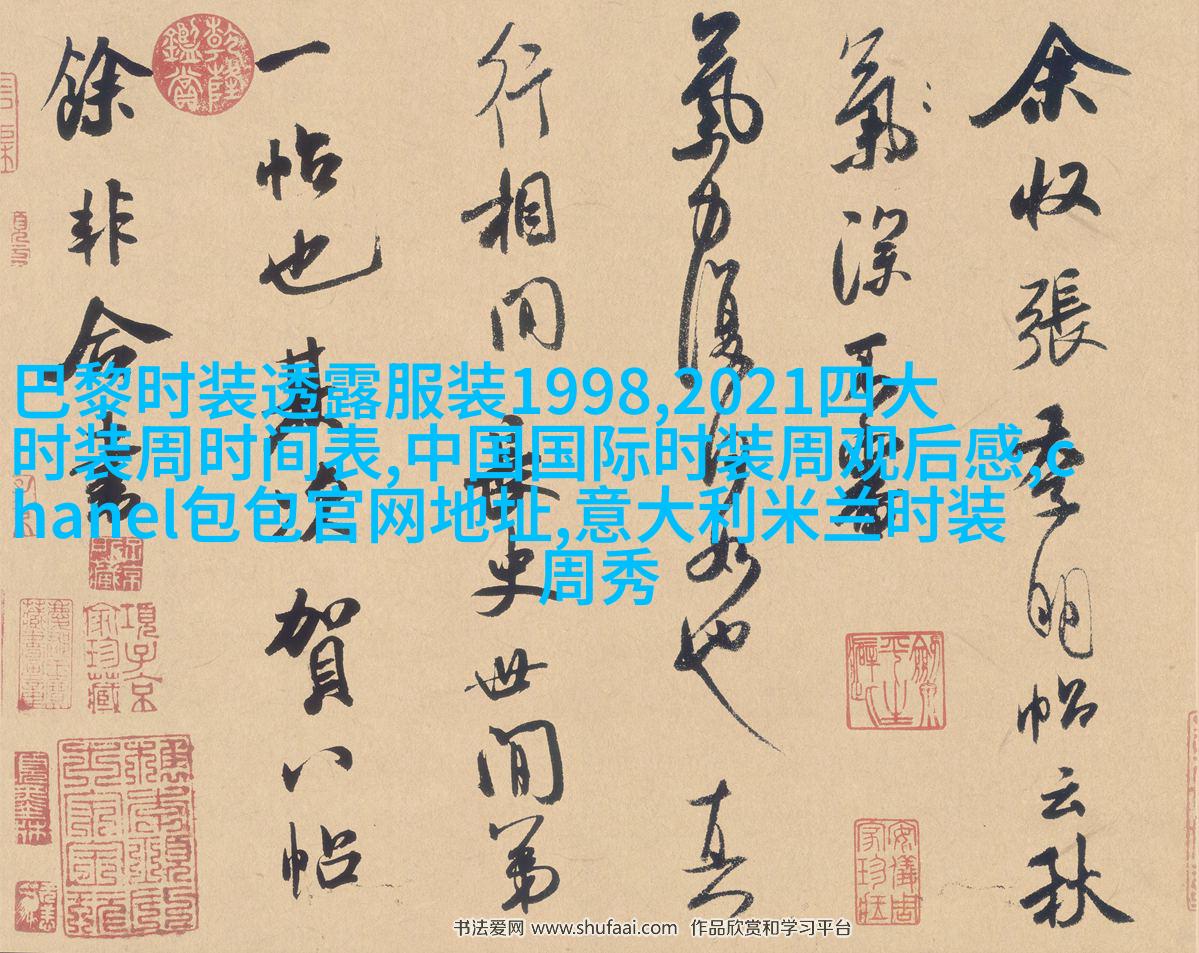 余收張季明帖云秋
氣深不審
氣力復何如也 真
行相間長史世間第
一帖也其次賀八帖
餘非合書
乾隆鑑賞
項子京家珍藏
安儀周家珍藏
巴黎时装透露服装1998,2021四大
时装周时间表,中国国际时装周观后感,c
hanel包包官网地址,意大利米兰时装
周秀
书法爱网 www.shufaai.com 作品欣赏和学习平台